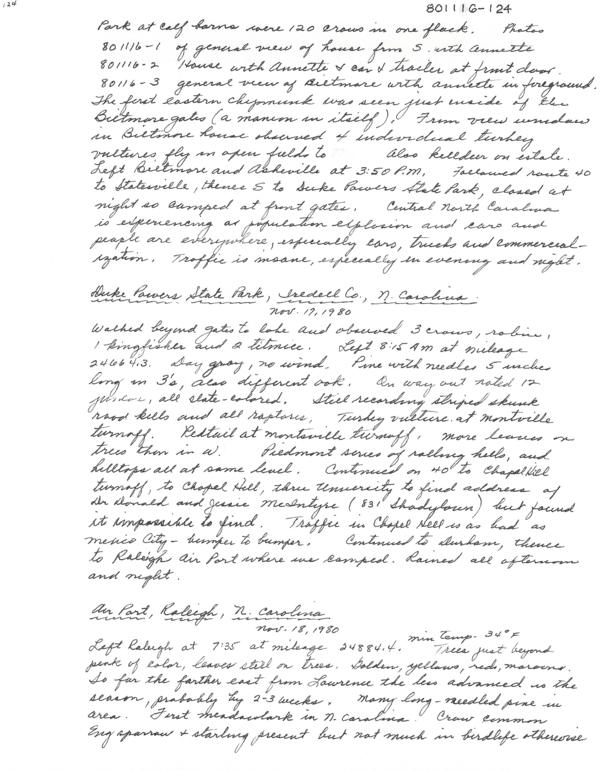 124
801116-124
Park at calf barns were 120 crows in one flock. Photos
801116-1 of general view of house from S. with Annette
801116-2 House with Annette & car & trailer at front door.
80116-3 general view of Biltmore with Annette in foreground.
The first eastern chipmunk was seen just inside of the
Biltmore gates (a mansion in itself). From view window
in Biltmore house observed 4 individual turkey
vultures fly in open fields to Also killdeer on estate.
Left Biltmore and Asheville at 3:50 P.M. Followed route 40
to Statesville, thence S to Duke Powers State Park, closed at
night so camped at front gates. Central North Carolina
is experiencing a population explosion and cars and
people are everywhere, especially cars, trucks and commercial-
ization. Traffic is insane, especially in evening and night.
Duke Powers State Park, Iredell Co., N. Carolina
Nov. 17, 1980
Walked beyond gates to lake and observed 3 crows, robin,
1 kingfisher and 2 titmice. Left 8:15 AM at mileage
24664.3. Day gray, no wind. Pine with needles 5 inches
long in 3's, also different oak. On way out noted 12
juncos, all slate-colored. Still recording striped skunk
road kills and all raptores. Turkey vulture at Montville
turnoff. Redtail at montsville turnoff. more leaves on
trees than in W. Piedmont series of rolling hills, and
hilltops all at same level. Continued on 40 to Chapel Hill
turnoff, to Chapel Hill, thru University to find address of
Dr Donald and Jessie McIntyre (831 Shadylawn) but found
it impossible to find. Traffic in Chapel Hill is as bad as
Mexico City - bumper to bumper. Continued to Durham, thence
to Raleigh Air Port where we camped. Rained all afternoon
and night.
Air Port, Raleigh, N. Carolina
Nov. 18, 1980
min temp. 34° F
Left Raleigh at 7:35 at mileage 24884.4. Trees just beyond
peak of color, leaves still on trees. Golden, yellows, reds, maroons.
So far the farther east from Lawrence the less advanced is the
season, probably by 2-3 weeks. Many long-needled pine in
area. First meadowlark in N. Carolina. Crow common
Eng sparrow & starling present but not much in birdlife otherwise